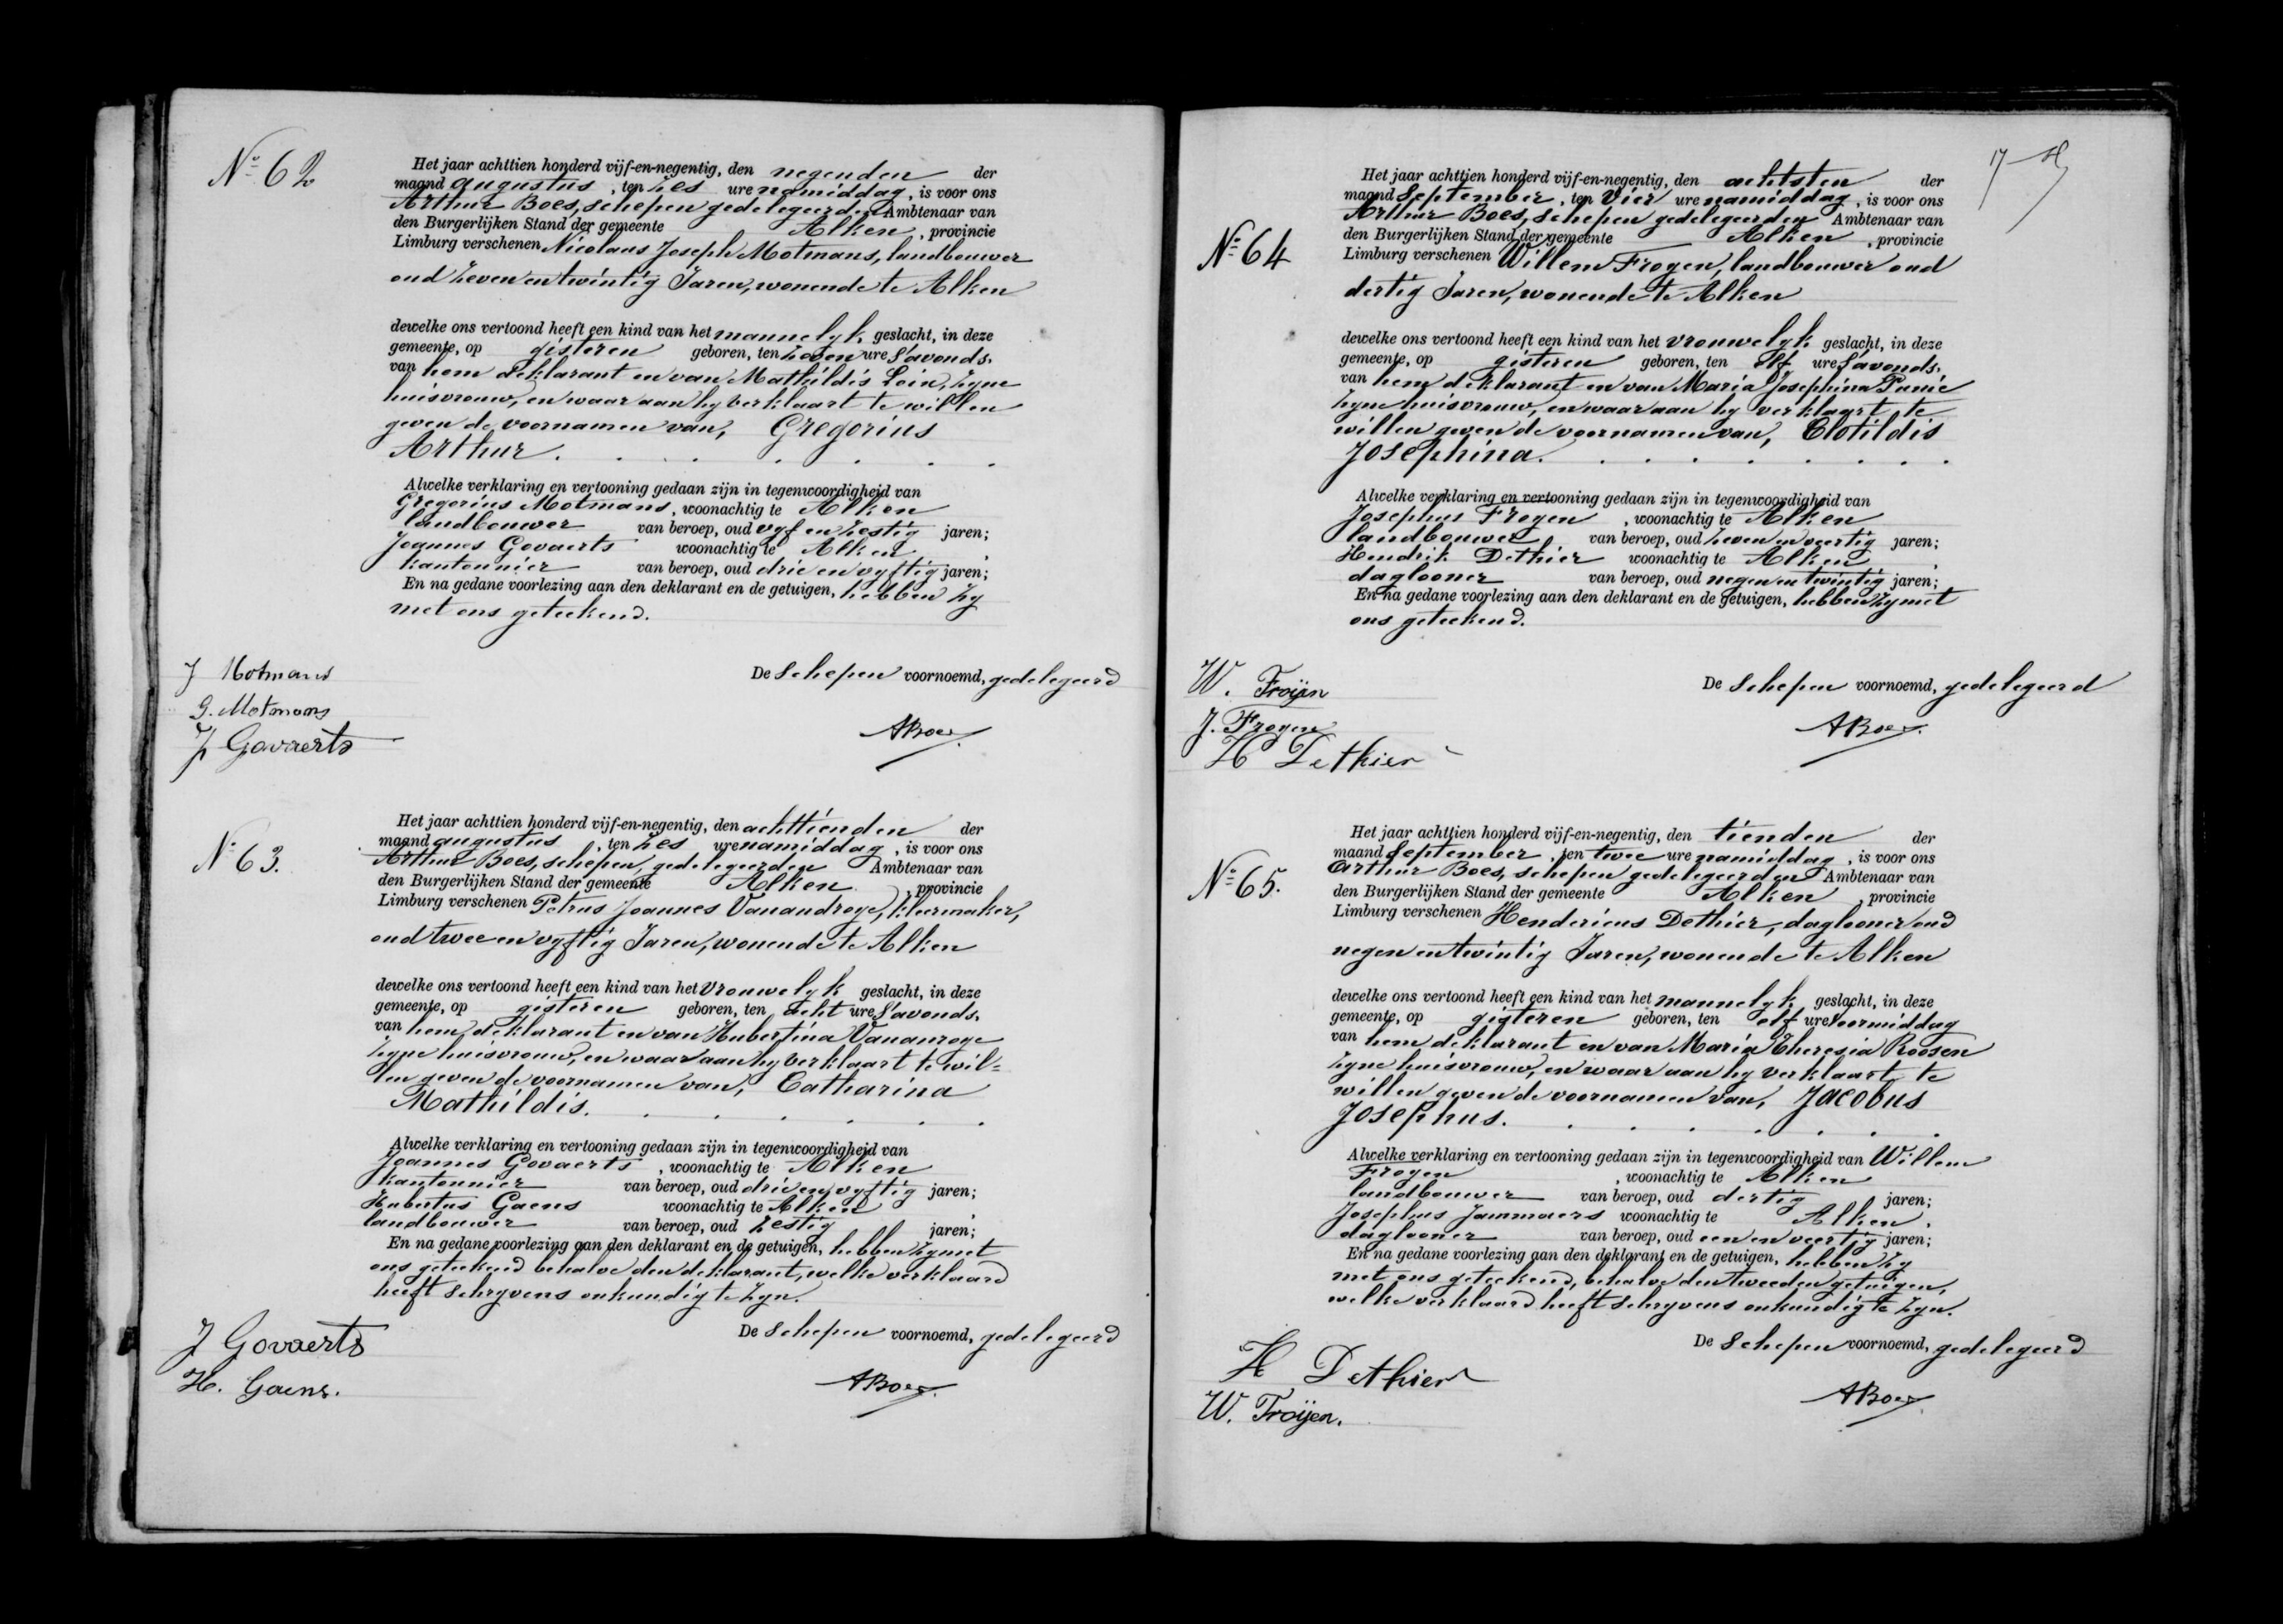 Nº 62
Het jaar achttien honderd vijf-en-negentig, den negenden der
maand augustus, ten Zes ure namiddag, is voor ons
Arthur Boes, schepen gedelegeerden Ambtenaar van
den Burgerlijken Stand der gemeente Alken, provincie
Limburg verschenen Nicolaus Joseph Motmans, landbouwer
oud Zeven en twintig Jaren, wonende te Alken
dewelke ons vertoond heeft een kind van het mannelyk geslacht, in deze
gemeente, op gisteren geboren, ten Zeven ure S'avonds,
van hem deklarant en van Mathildis Loix, Zyne
huisvrouw, en waar aan hy verklaart te willen
geven de voornamen van, Gregorius
Arthur.
Alwelke verklaring en vertooning gedaan zijn in tegenwoordigheid van
Gregorius Motmans, woonachtig te Alken
landbouwer van beroep, oud vyf en Zestig jaren;
Joannes Govaerts woonachtig te Alken,
kantonnier van beroep, oud drie en vyftig jaren;
En na gedane voorlezing aan den deklarant en de getuigen, hebben Zy
met ons geteekend.
De Schepen voornoemd, gedelegeerd
J Motmans
G. Motmans
J Govaerts
ABoes
Nº 63.
Het jaar achttien honderd vijf-en-negentig, den achttienden der
maand augustus, ten Zes ure namiddag, is voor ons
Arthur Boes, schepen, gedelegeerden Ambtenaar van
den Burgerlijken Stand der gemeente Alken, provincie
Limburg verschenen Petrus Joannes Vanandroye, kleermaker,
oud twee en vyftig Jaren, wonende te Alken
dewelke ons vertoond heeft een kind van het vrouwelyk geslacht, in deze
gemeente, op gisteren geboren, ten acht ure S'avonds,
van hem deklarant en van Hubertina Vananroye
Zyne huisvrouw, en waar aan hy verklaart te wil=
len geven de voornamen van, Catharina
Mathildis.
Alwelke verklaring en vertooning gedaan zijn in tegenwoordigheid van
Joannes Govaerts, woonachtig te Alken
kantonnier van beroep, oud drie en vyftig jaren;
Hubertus Gaens woonachtig te Alken,
landbouwer van beroep, oud Zestig jaren;
En na gedane voorlezing aan den deklarant en de getuigen, hebben Zy met
ons geteekend behalve den deklarant, welke verklaard
heeft schryvens onkundig te Zyn.
De Schepen voornoemd, gedelegeerd
J Govaerts
H. Gaens.
ABoes.
17
Nº 64
Het jaar achttien honderd vijf-en-negentig, den achtsten der
maand September, ten Vier ure namiddag, is voor ons
Arthur Boes, schepen gedelegeerden Ambtenaar van
den Burgerlijken Stand der gemeente Alken, provincie
Limburg verschenen Willem Froyen, landbouwer oud
dertig Jaren, wonende te Alken
dewelke ons vertoond heeft een kind van het vrouwelyk geslacht, in deze
gemeente, op gisteren geboren, ten Elf ure S'avonds,
van hem deklarant en van Maria Josephina Punie
Zyne huisvrouw, en waar aan hy verklaart te
willen geven de voornamen van, Clotildis
Josephina.
Alwelke verklaring en vertooning gedaan zijn in tegenwoordigheid van
Josephus Froyen, woonachtig te Alken
landbouwer van beroep, oud Zeven en veertig jaren;
Hendrik Dethier woonachtig te Alken,
daglooner van beroep, oud negen en twintig jaren;
En na gedane voorlezing aan den deklarant en de getuigen, hebben Zy met
ons geteekend.
De Schepen voornoemd, gedelegeerd
W. Froijen
J. Froyen
H Dethier
ABoes.
Nº 65.
Het jaar achttien honderd vijf-en-negentig, den tienden der
maand September, ten twee ure namiddag, is voor ons
Arthur Boes, schepen gedelegeerden Ambtenaar van
den Burgerlijken Stand der gemeente Alken, provincie
Limburg verschenen Hendericus Dethier, daglooner oud
negen en twintig Jaren, wonende te Alken
dewelke ons vertoond heeft een kind van het mannelyk geslacht, in deze
gemeente, op gisteren geboren, ten elf ure Voormiddag
van hem deklarant en van Maria Theresia Roosen
Zyne huisvrouw, en waar aan hy verklaart te
willen geven de voornamen van, Jacobus
Josephus.
Alwelke verklaring en vertooning gedaan zijn in tegenwoordigheid van Willem
Froyen, woonachtig te Alken
landbouwer van beroep, oud dertig jaren;
Josephus Jammaers woonachtig te Alken,
daglooner van beroep, oud een en veertig jaren;
En na gedane voorlezing aan den deklarant en de getuigen, hebben Zy
met ons geteekend, behalve den tweeden getuigen,
welke verklaard heeft schryvens onkundig te Zyn.
De Schepen voornoemd, gedelegeerd
H Dethier
W. Froijen.
ABoes